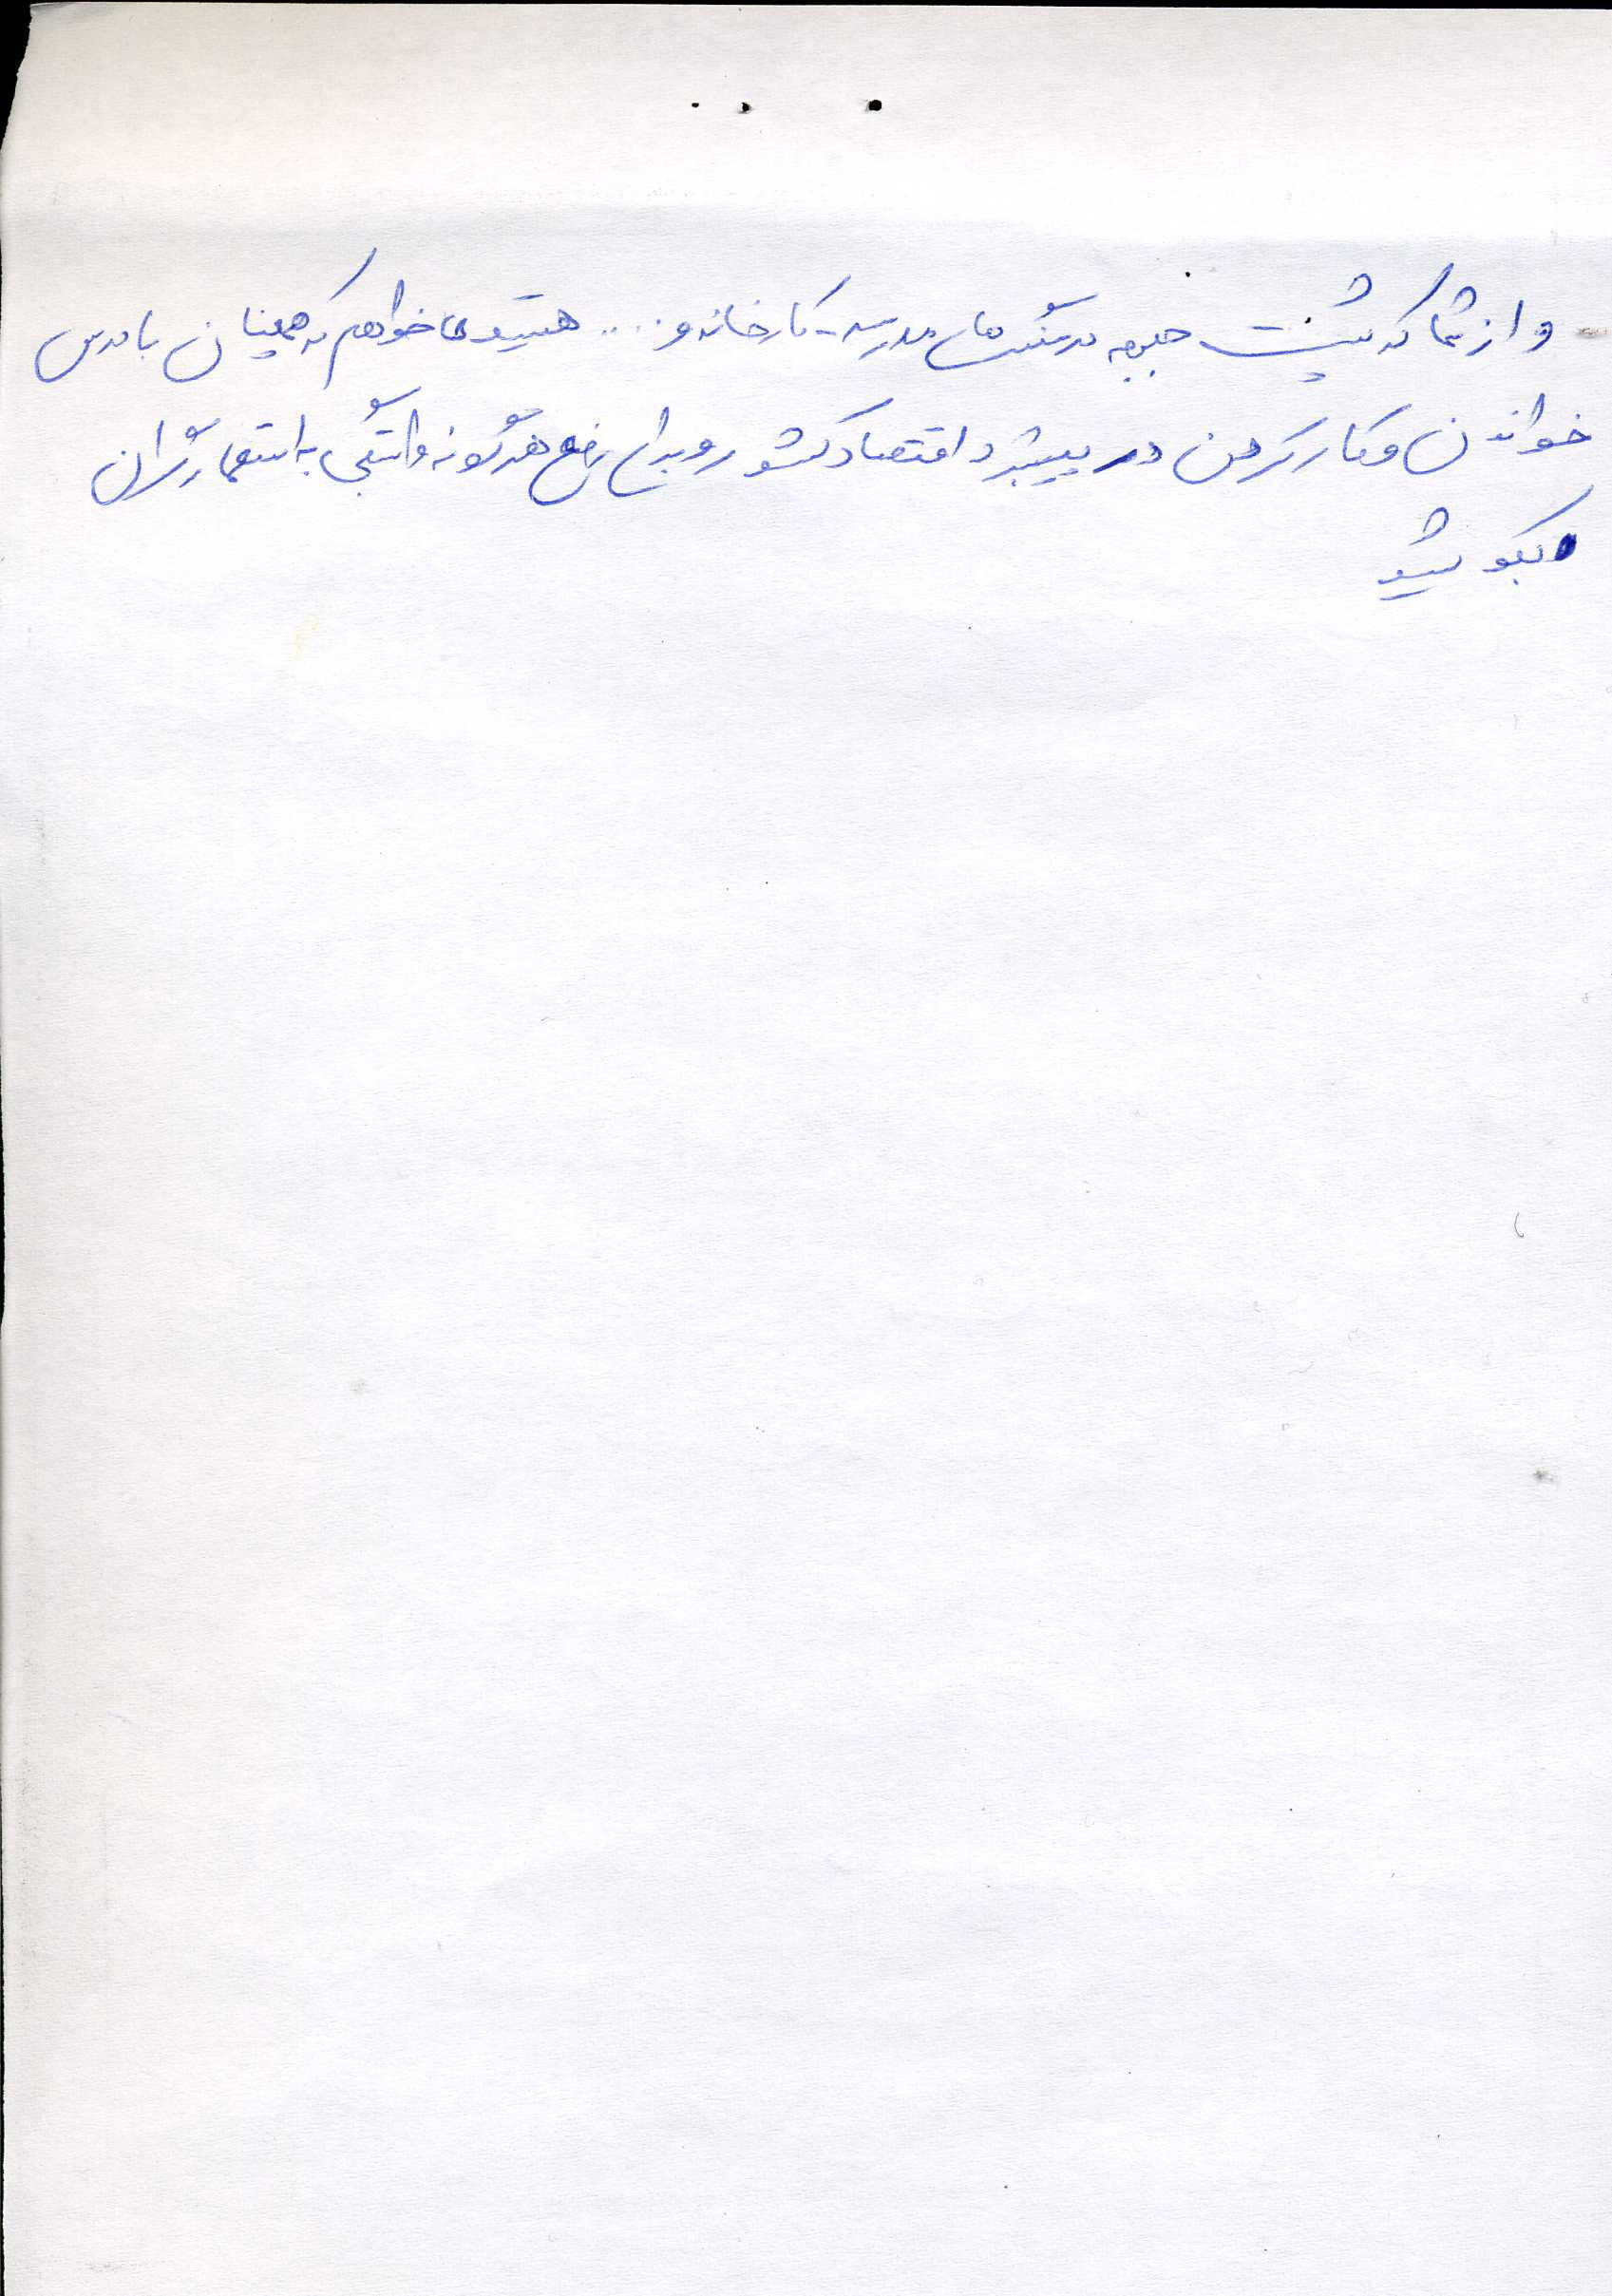 و از شما که پشت جبهه در سنگرهای مدرسه - کارخانه و .... هستید می‌خواهم که همچنان با درس
خواندن و کار کردن در پیشبرد اقتصاد کشور و برای رفع هرگونه وابستگی به استعمارگران
بکوشید